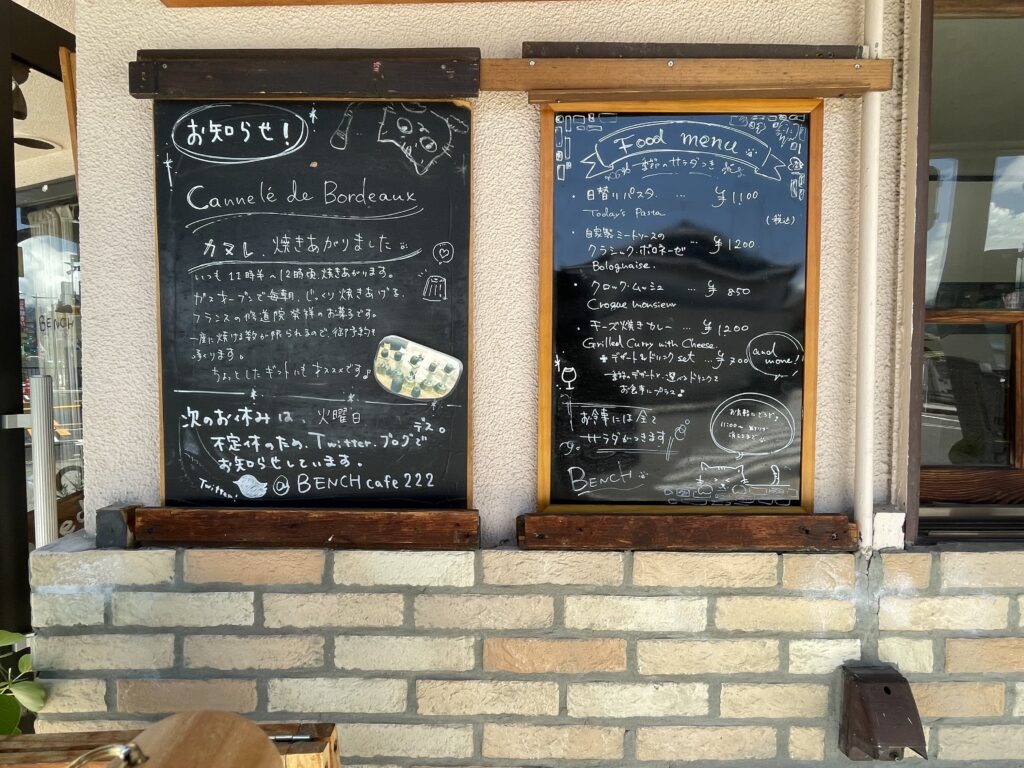 お知らせ!
Cannelé de Bordeaux
カヌレ、焼きあがりました
いつも11時半〜12時頃、焼きあがります。
ガスオーブンで毎朝、じっくり焼きあげる、
フランスの修道院発祥のお菓子です。
一度に焼ける数が限られるので、御予約も
承ります。
ちょっとしたギフトにもオススメです♪
次のお休みは、火曜日
デス。
不定休のため、Twitter、ブログで
お知らせしています。
Twitter!
@BENCHcafe222
Food menu
日替りパスタ ... ¥1100
Today's Pasta
(税込)
自家製ミートソースの
クラシック・ボロネーゼ ... ¥1200
Bolognaise.
クロック・ムッシュ ... ¥850
Croque monsieur
チーズ焼きカレー ... ¥1200
Grilled Curry with Cheese.
+デザート&ドリンク set ... ¥700
and more!
お食事にプラス♪
お食事には全て
サラダがつきます
11:00〜
BENCH
BENCH